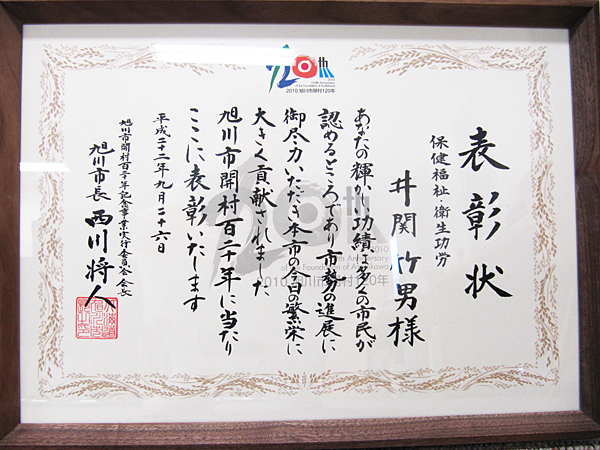 120th
120th Anniversary
of the Foundation of Asahikawa
2010 旭川市開村120年
表彰状
保健福祉・衛生功労
井関竹男様
あなたの輝かしい功績は多くの市民が
認めるところであり市勢の進展に
御尽力いただき本市の今日の繁栄に
大きく貢献されました
旭川市開村百二十年に当たり
ここに表彰いたします
平成二十二年九月二十六日
旭川市開村百二十年記念事業実行委員会会長
旭川市長 西川将人
120th Anniversary
of the Foundation of Asahikawa
2010 旭川市開村120年